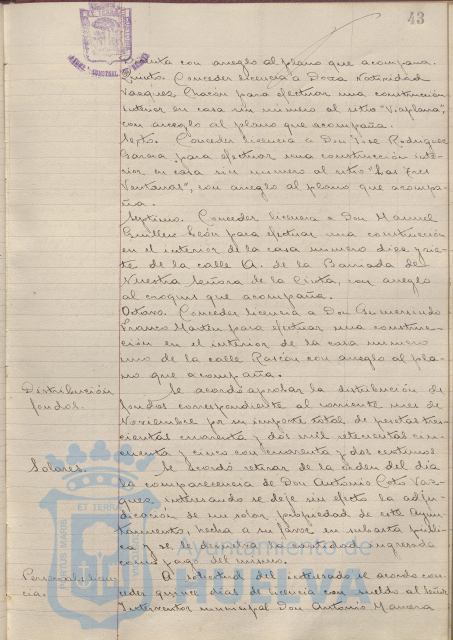 43
cinta con arreglo al plano que acompaña.
Quinto. Conceder licencia a Doña Natividad
Vazquez Chacón para efectuar una construcción
interior en casa sin número al sitio "Viaplana",
con arreglo al plano que acompaña.
Septo. Conceder licencia a Don José Rodriguez
Garcia para efectuar una construcción inte-
rior en casa sin numero al sitio "Las Tres
Ventanas", con arreglo al plano que acompa-
ña.
Septimo. Conceder licencia a Don Manuel
Guillen León para efectuar una construcción
en el interior de la casa numero diez y sie-
te de la calle A. de la Barriada de
Nuestra Señora de la Cinta, con arreglo
al croquis que acompaña.
Octavo. Conceder licencia a Don Gumersindo
Franco Martin para efectuar una construc-
ción en el interior de la casa numero
uno de la calle Rascón con arreglo al pla-
no que acompaña.
Distribución fondos.
Se acordó aprobar la distribución de
fondos correspondiente al corriente mes de
Noviembre por su importe total de pesetas tres-
cientas cuarenta y dos mil setecientas cin-
cuenta y cinco con cuarenta y dos centimos
Solares.
Se acordó retirar de la orden del dia
la comparecencia de Don Antonio Coto Vaz-
quez interesando se deje sin efecto la adju-
dicación de un solar propiedad de este Ayun-
tamiento, hecha a su favor en subasta públi-
ca y se le devuelva la cantidad ingresada
como pago del mismo.
Personal licen-
cia.
A solicitud del interesado se acordó con-
ceder quince dias de licencia con sueldo al Señor
Interventor municipal Don Antonio Manera
Ayuntamiento de
HUELVA